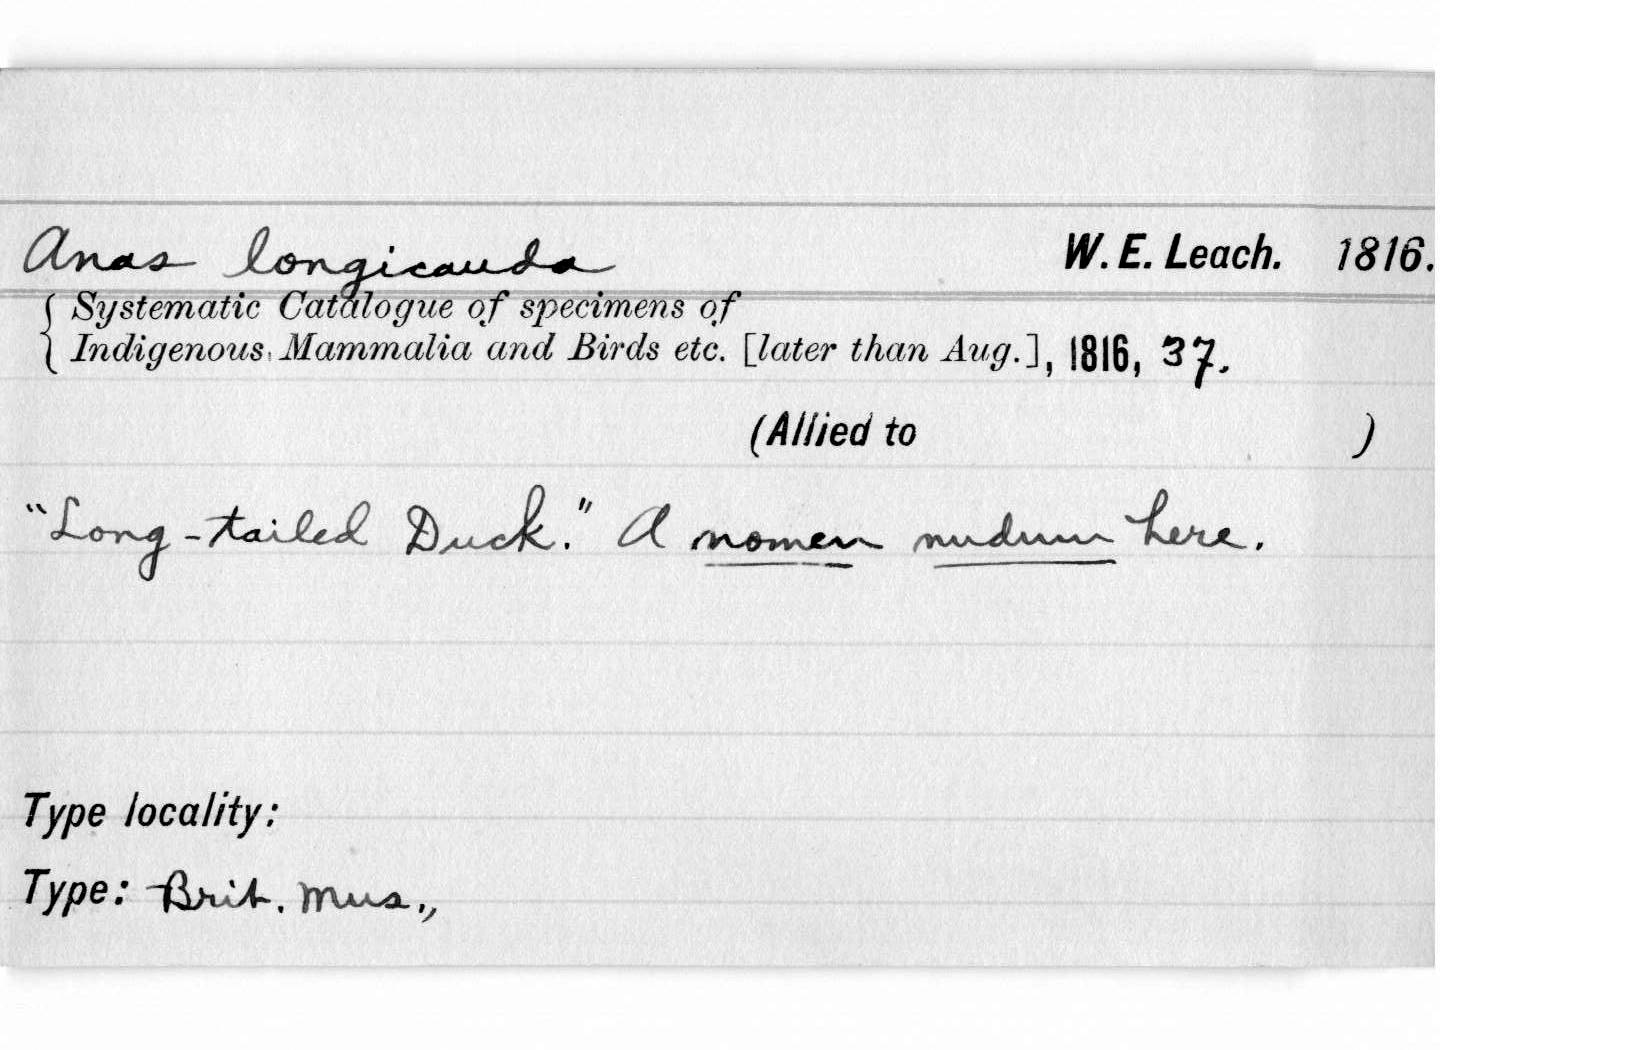 Anas longicauda W. E. Leach. 1816.
{ Systematic Catalogue of specimens of
Indigenous Mammalia and Birds etc. [later than Aug.], 1816, 37.
(Allied to )
"Long-tailed Duck." A nomen nudum here.
Type locality:
Type: Brit. Mus.,